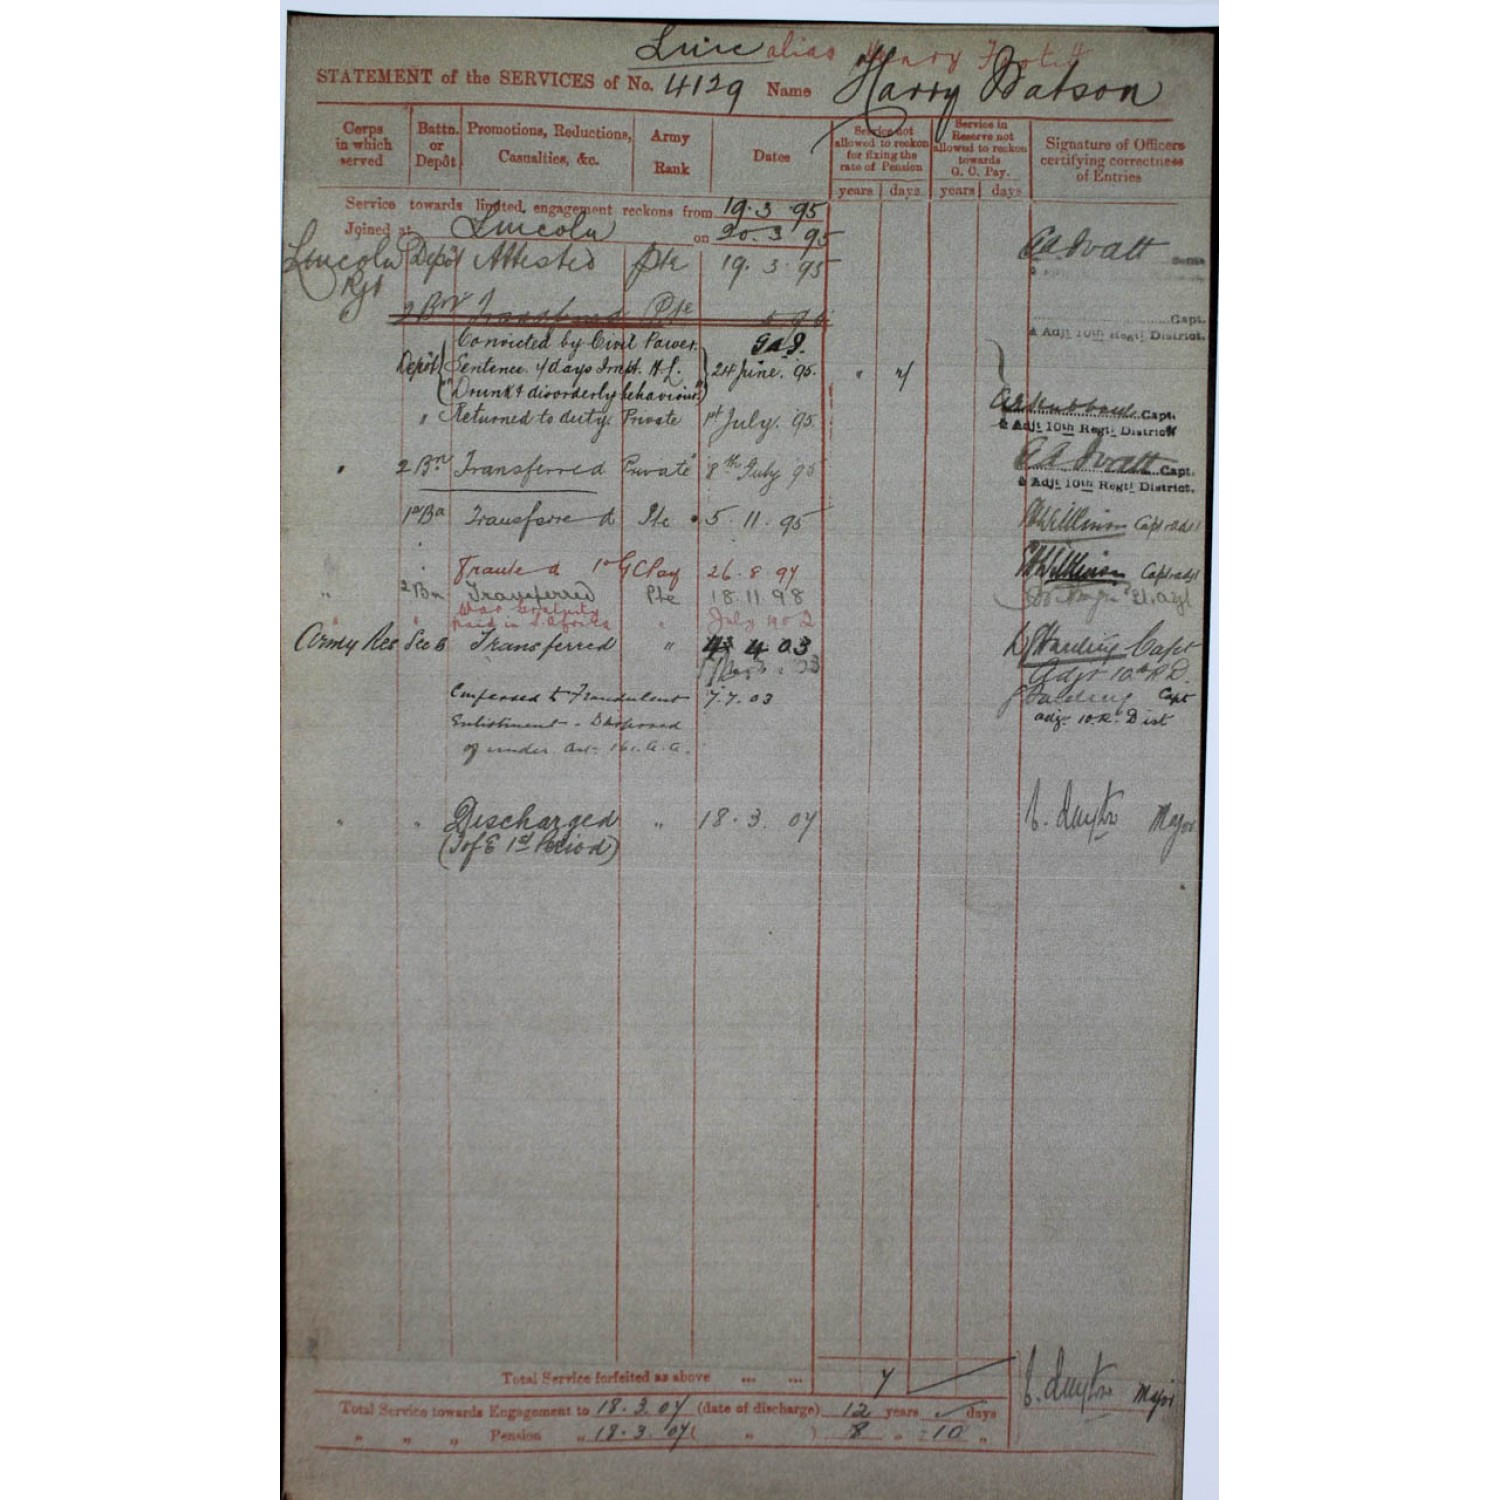 Linc alias Henry
STATEMENT of the SERVICES of No. 4129 Name Harry Watson
Corps in which served
Battn. or Depôt
Promotions, Reductions, Casualties, &c.
Army Rank
Dates
Service not allowed to reckon for fixing the rate of Pension
Service in Reserve not allowed to reckon towards G. C. Pay.
Signature of Officers certifying correctness of Entries
years days years days
Service towards limited engagement reckons from 19·3·95
Joined at Lincoln on 20·3·95
Lincoln Rgt Depôt Attested Pte 19·3·95
2 Bn Transferred Pte
Capt.
& Adjt 10th Regtl District.
Convicted by Civil Power.
Depôt Sentence 7 days Impt. H.L. 24 June. 95. " 7
"Drunk & disorderly behaviour"
" Returned to duty. Private 1st July. 95. Capt.
& Adjt 10th Regtl District
" 2 Bn Transferred Private 8th July 95 Capt.
& Adjt 10th Regtl District.
1st Bn Transferred Pte 5·11·95 Wilkinson Capt & adjt
Granted 1st G C Pay 26·8·97 Wilkinson Capt & adjt
" 2 Bn Transferred Pte 18·11·98
War Gratuity
paid in S. Africa " July 1902
Army Res Sec B Transferred " 4 03 Harding Capt
Adjt 10th R.D.
Confessed to Fraudulent 7.7.03 Harding Capt
Enlistment - Dispensed adj. 10. R. Dist
of under Art. A.A.
" " Discharged " 18·3·07 Major
(T of E 1st Period)
Total Service forfeited as above ... ... 7 Major
Total Service towards Engagement to 18·3·07 (date of discharge) 12 years days
" " " Pension " 18·3·07 ( " ) 8 " 10 "